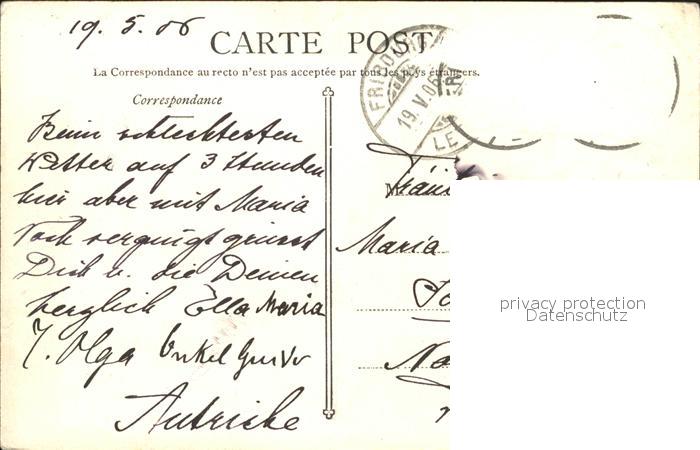 19. 5. 06
CARTE POST
La Correspondance au recto n'est pas acceptée par tous les pays étrangers.
FRIBOURG
19.V.06
LE
Correspondance
Beim schlechtesten
Wetter auf 3 Stunden
hier aber mit Maria
Noch vergnügt grüsst
Dich u. die Deinen
herzlich Ella Maria
T. Olga Onkel Gustav
Autriche
Fräul
Maria
privacy protection
Datenschutz